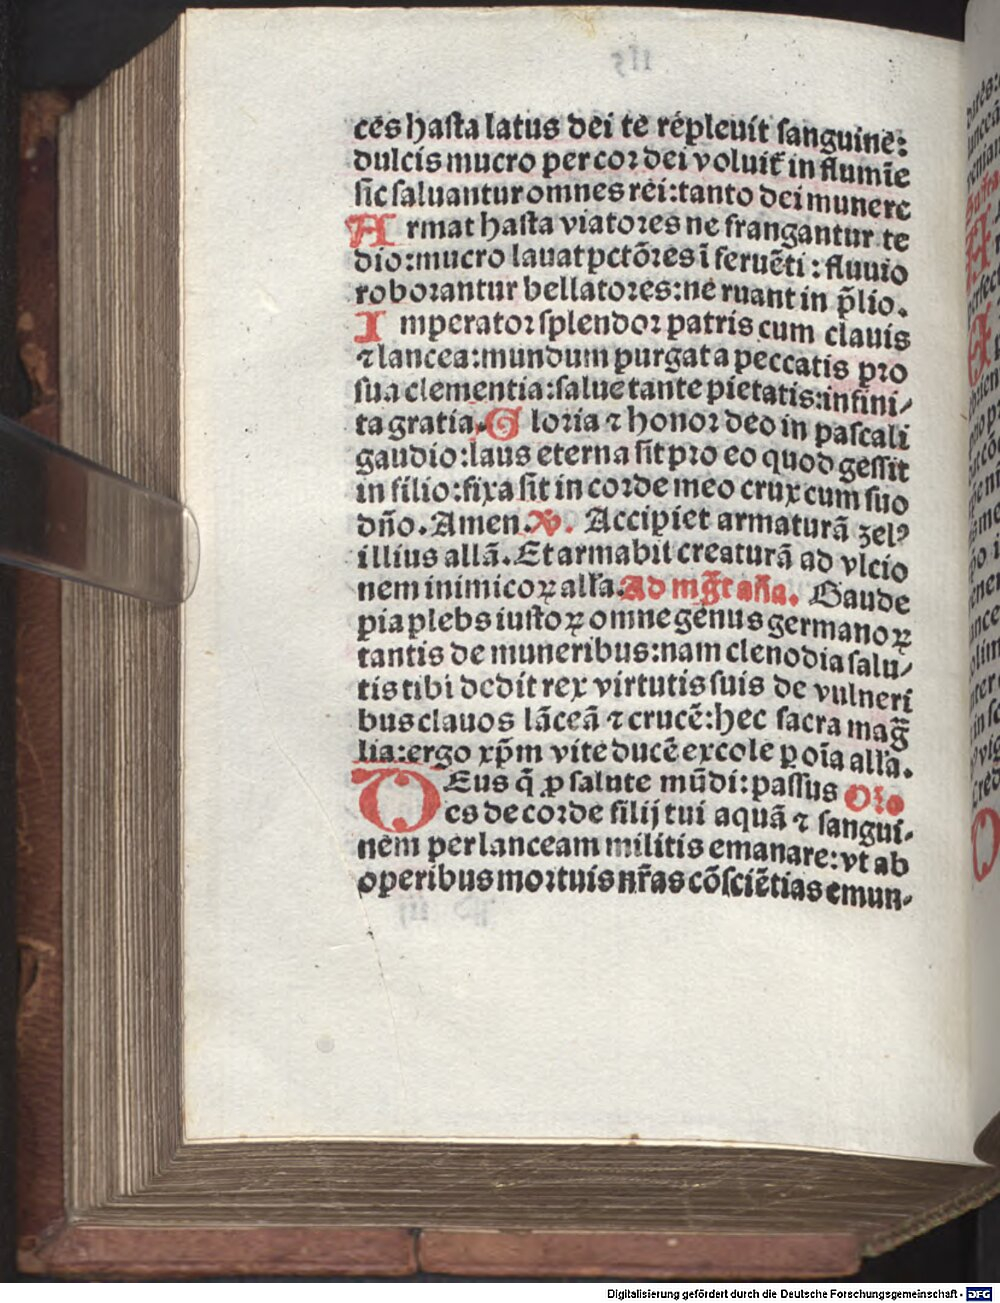 ces hasta latus dei te repleuit sanguine:
dulcis mucro per cor dei voluit̄ in flumīe
sic saluantur omnes rei: tanto dei munere
Armat hasta viatores ne frangantur te
dio: mucro lauat pctōres ī feruēti: fluuio
roborantur bellatores: ne ruant in p̄lio.
Imperator splendor patris cum clauis
⁊ lancea: mundum purgat a peccatis pro
sua clementia: salue tante pietatis: infini/
ta gratia. Gloria ⁊ honor deo in pascali
gaudio: laus eterna sit pro eo quod gessit
in filio: fixa sit in corde meo crux cum suo
dño. Amen. V. Accipiet armaturā zelꝰ
illius allā. Et armabit creaturā ad vlcio
nem inimicoꝝ alľa. Ad mg̅t aña. Gaude
pia plebs iustoꝝ omne genus germanoꝝ
tantis de muneribus: nam clenodia salu/
tis tibi dedit rex virtutis suis de vulneri
bus clauos lāceā ⁊ crucē: hec sacra mag̅
lia: ergo xp̄m vite ducē excole ꝑ oīa alľa.
DEus q̄ ꝓ salute mūdi: passus Oro
es de corde filij tui aquā ⁊ sangui-
nem per lanceam militis emanare: vt ab
operibus mortuis nr̄as cōsciētias emun-
Digitalisierung gefördert durch die Deutsche Forschungsgemeinschaft - DFG